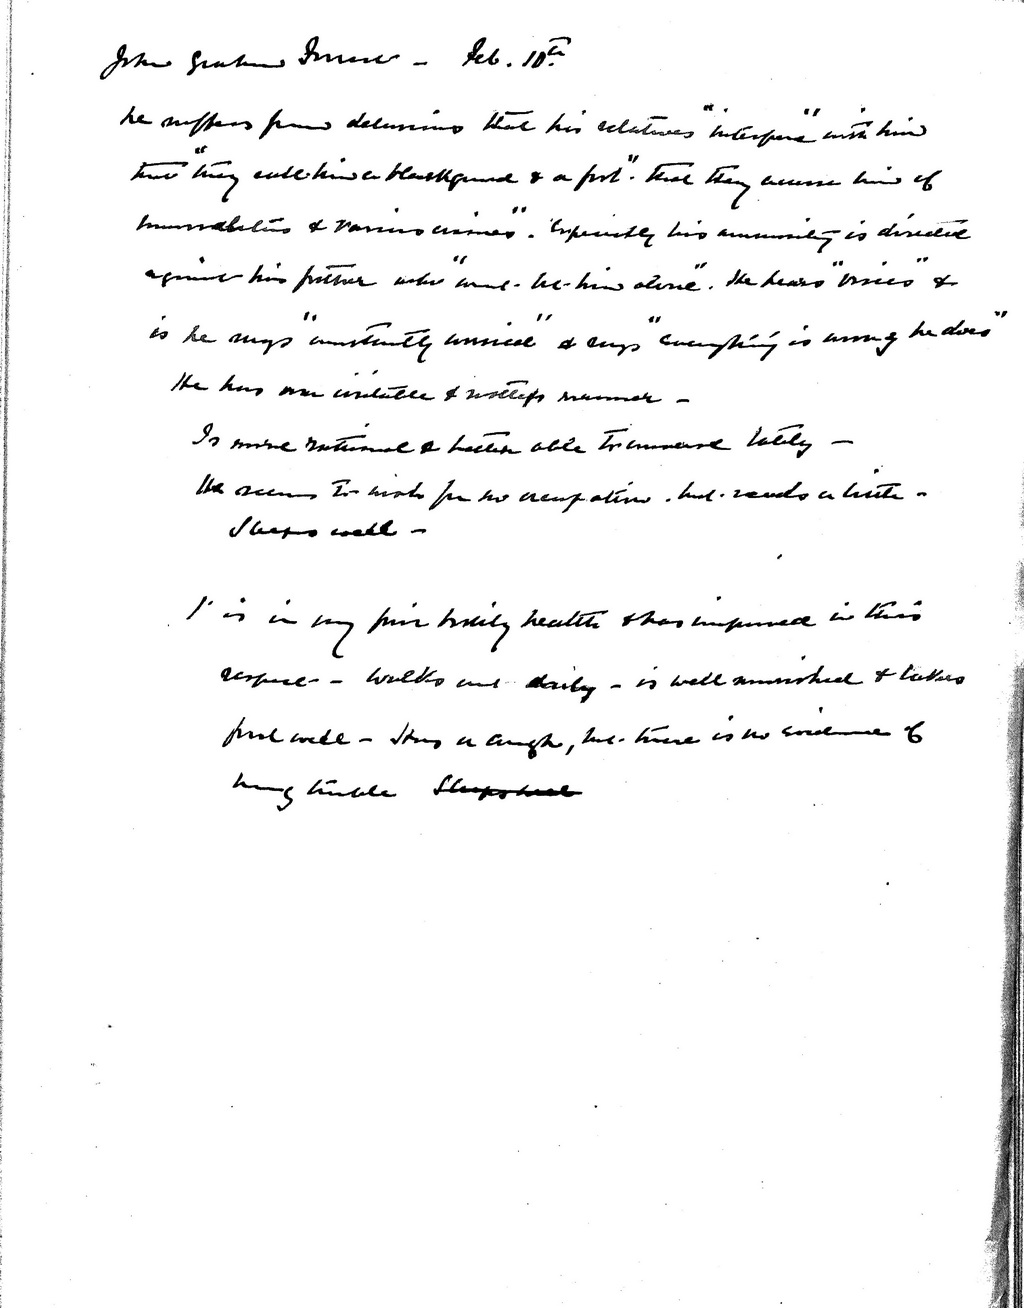 John Graham - Feb. 10th
he suffers from delusions that his relatives "interfere" with him
that "they call him a blackguard & a fool". that they accuse him of
immoralities & various crimes". Especially his animosity is directed
against his father who "won't let him alone". He hears "voices" &
is he says "constantly worried" & says "everything is wrong he does"
He has an irritable & restless manner -
Is more rational & better able to converse lately -
He seems to wish for no occupation. but reads a little -
Sleeps well -
is in very fair bodily health & has improved in this
respect - walks out daily - is well nourished & takes
food well - Has a cough, but there is no evidence of
lung trouble Sleeps well